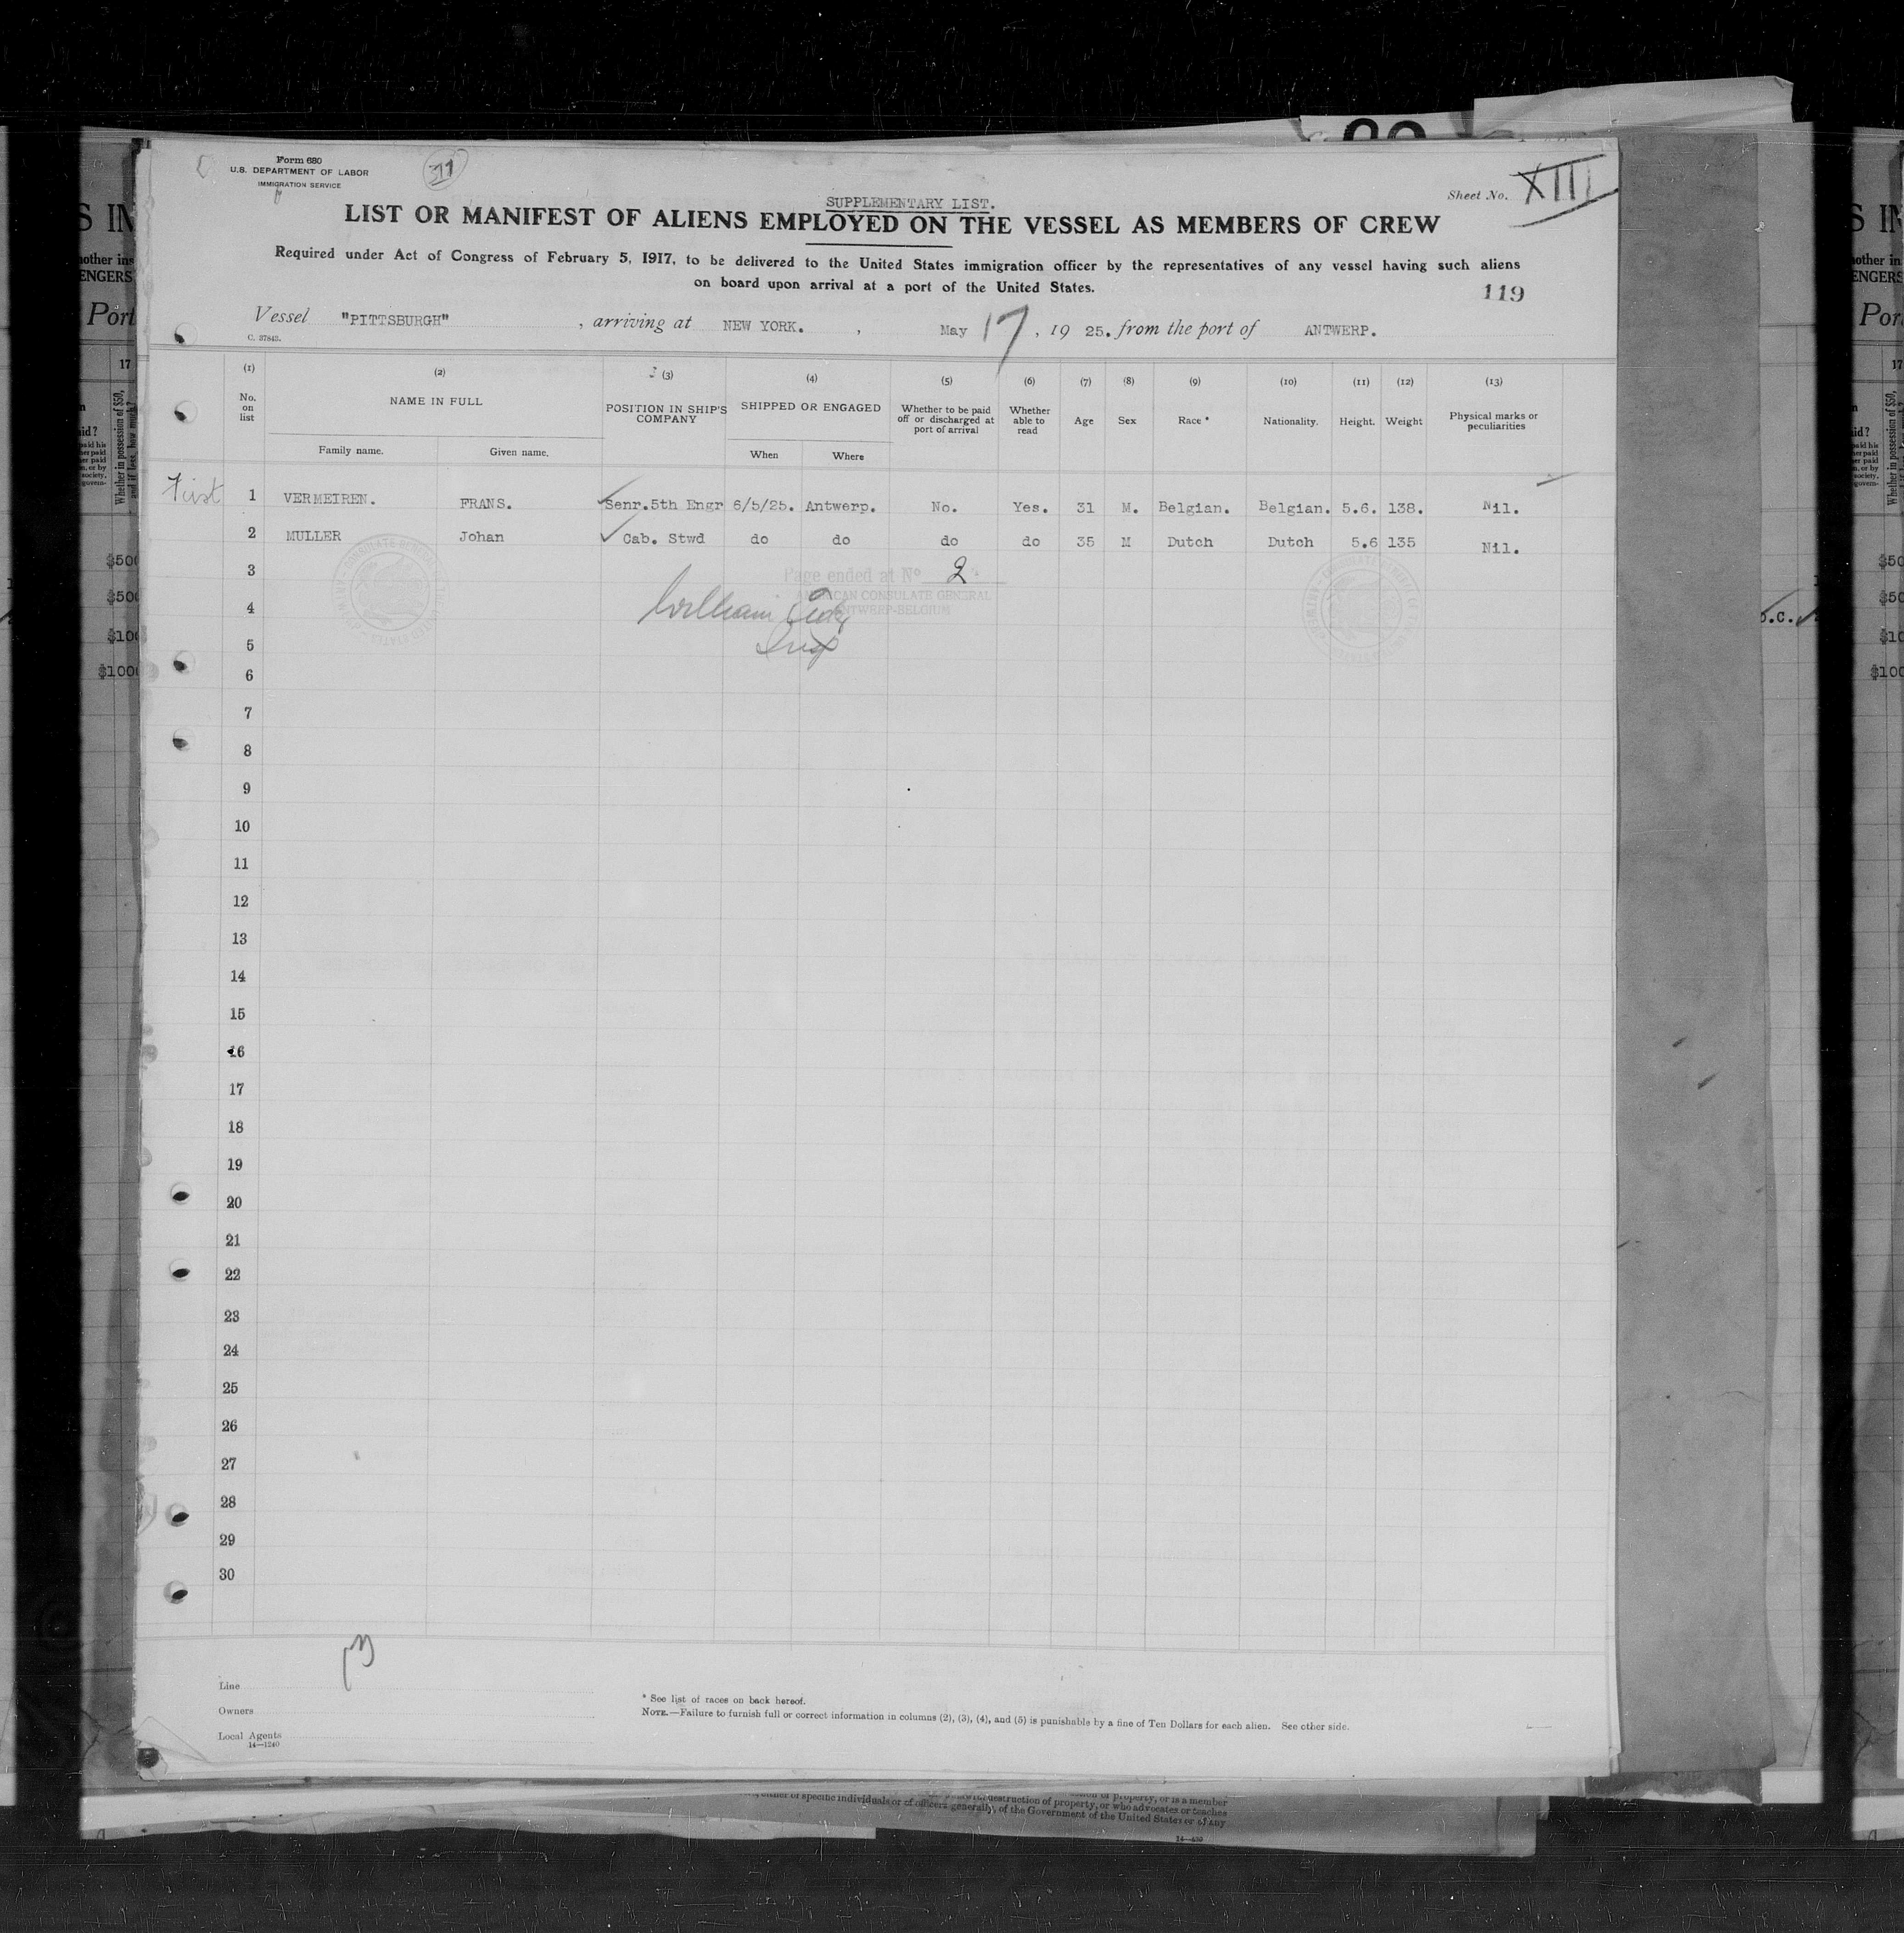 Form 680
U.S. DEPARTMENT OF LABOR
IMMIGRATION SERVICE
Sheet No. XIII
SUPPLEMENTARY LIST.
LIST OR MANIFEST OF ALIENS EMPLOYED ON THE VESSEL AS MEMBERS OF CREW
Required under Act of Congress of February 5, 1917, to be delivered to the United States immigration officer by the representatives of any vessel having such aliens
on board upon arrival at a port of the United States.
119
Vessel "PITTSBURGH" , arriving at NEW YORK. , May 17, 19 25. from the port of ANTWERP.
C. 37843.
(1) (2) (3) (4) (5) (6) (7) (8) (9) (10) (11) (12) (13)
No. on list
NAME IN FULL
Family name. Given name.
POSITION IN SHIP'S COMPANY
SHIPPED OR ENGAGED
When Where
Whether to be paid off or discharged at port of arrival
Whether able to read
Age
Sex
Race *
Nationality.
Height.
Weight
Physical marks or peculiarities
First 1 VERMEIREN. FRANS. Senr.5th Engr 6/5/25. Antwerp. No. Yes. 31 M. Belgian. Belgian. 5.6. 138. Nil.
2 MULLER Johan Cab. Stwd do do do do 35 M Dutch Dutch 5.6 135 Nil.
3
Page ended at No 2
AMERICAN CONSULATE GENERAL
4
ANTWERP-BELGIUM
William
5
6
7
8
9
10
11
12
13
14
15
16
17
18
19
20
21
22
23
24
25
26
27
28
29
30
Line
Owners
Local Agents
14—1240
* See list of races on back hereof.
NOTE.—Failure to furnish full or correct information in columns (2), (3), (4), and (5) is punishable by a fine of Ten Dollars for each alien. See other side.
destruction of property, or who advocates or teaches
either of specific individuals or of officers generally, of the Government of the United States or of any